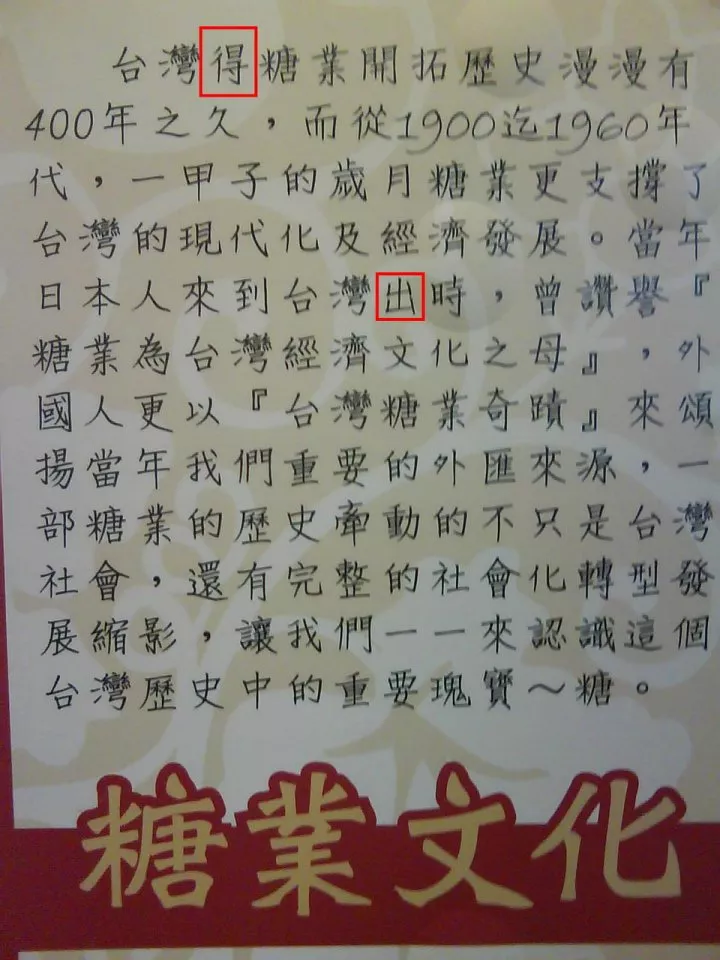 台灣得糖業開拓歷史漫漫有
400年之久，而從1900迄1960年
代，一甲子的歲月糖業更支撐了
台灣的現代化及經濟發展。當年
日本人來到台灣出時，曾讚譽『
糖業為台灣經濟文化之母』，外
國人更以『台灣糖業奇蹟』來頌
揚當年我們重要的外匯來源，一
部糖業的歷史牽動的不只是台灣
社會，還有完整的社會化轉型發
展縮影，讓我們一一來認識這個
台灣歷史中的重要瑰寶～糖。
糖業文化